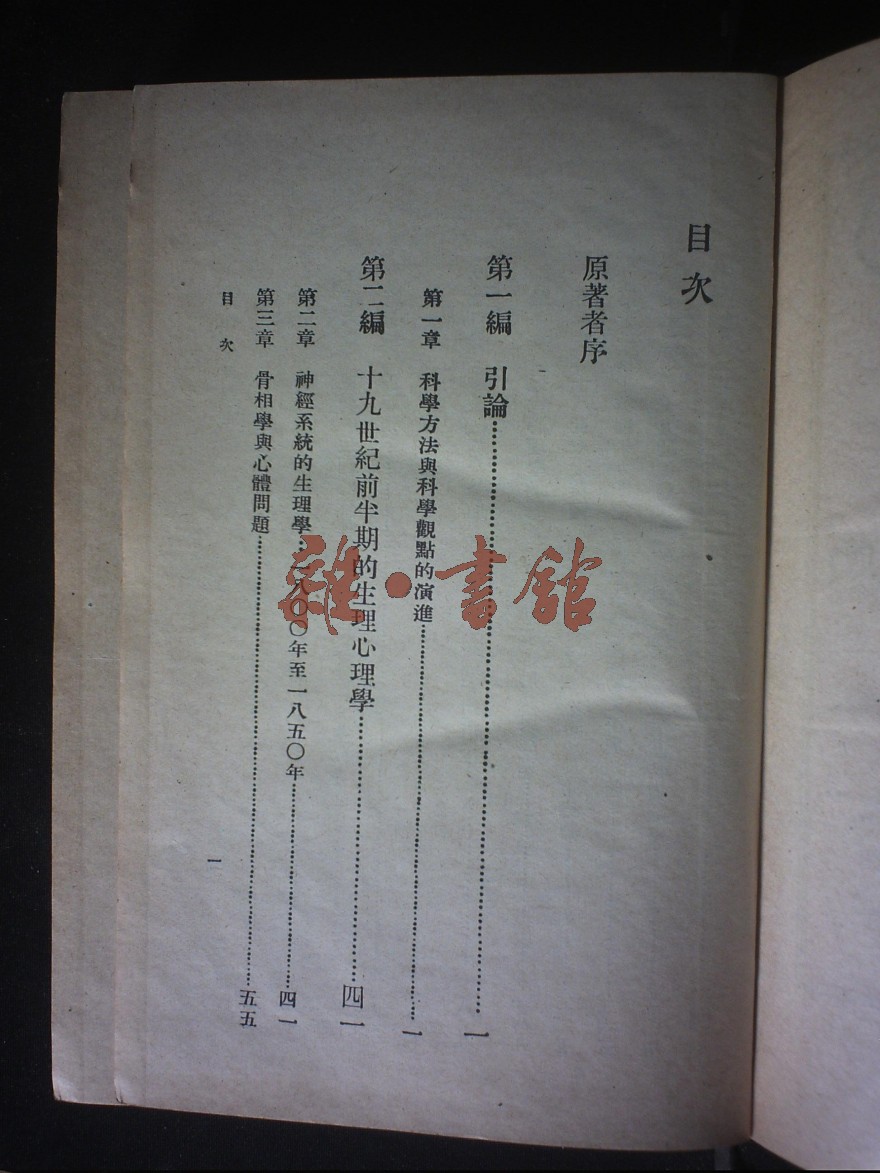 目次
原著者序
第一編 引論……一
第一章 科學方法與科學觀點的演進……一
第二編 十九世紀前半期的生理心理學……四一
第二章 神經系統的生理學：一八〇〇年至一八五〇年……四一
第三章 骨相學與心體問題……五五
目次
一
雜·書館